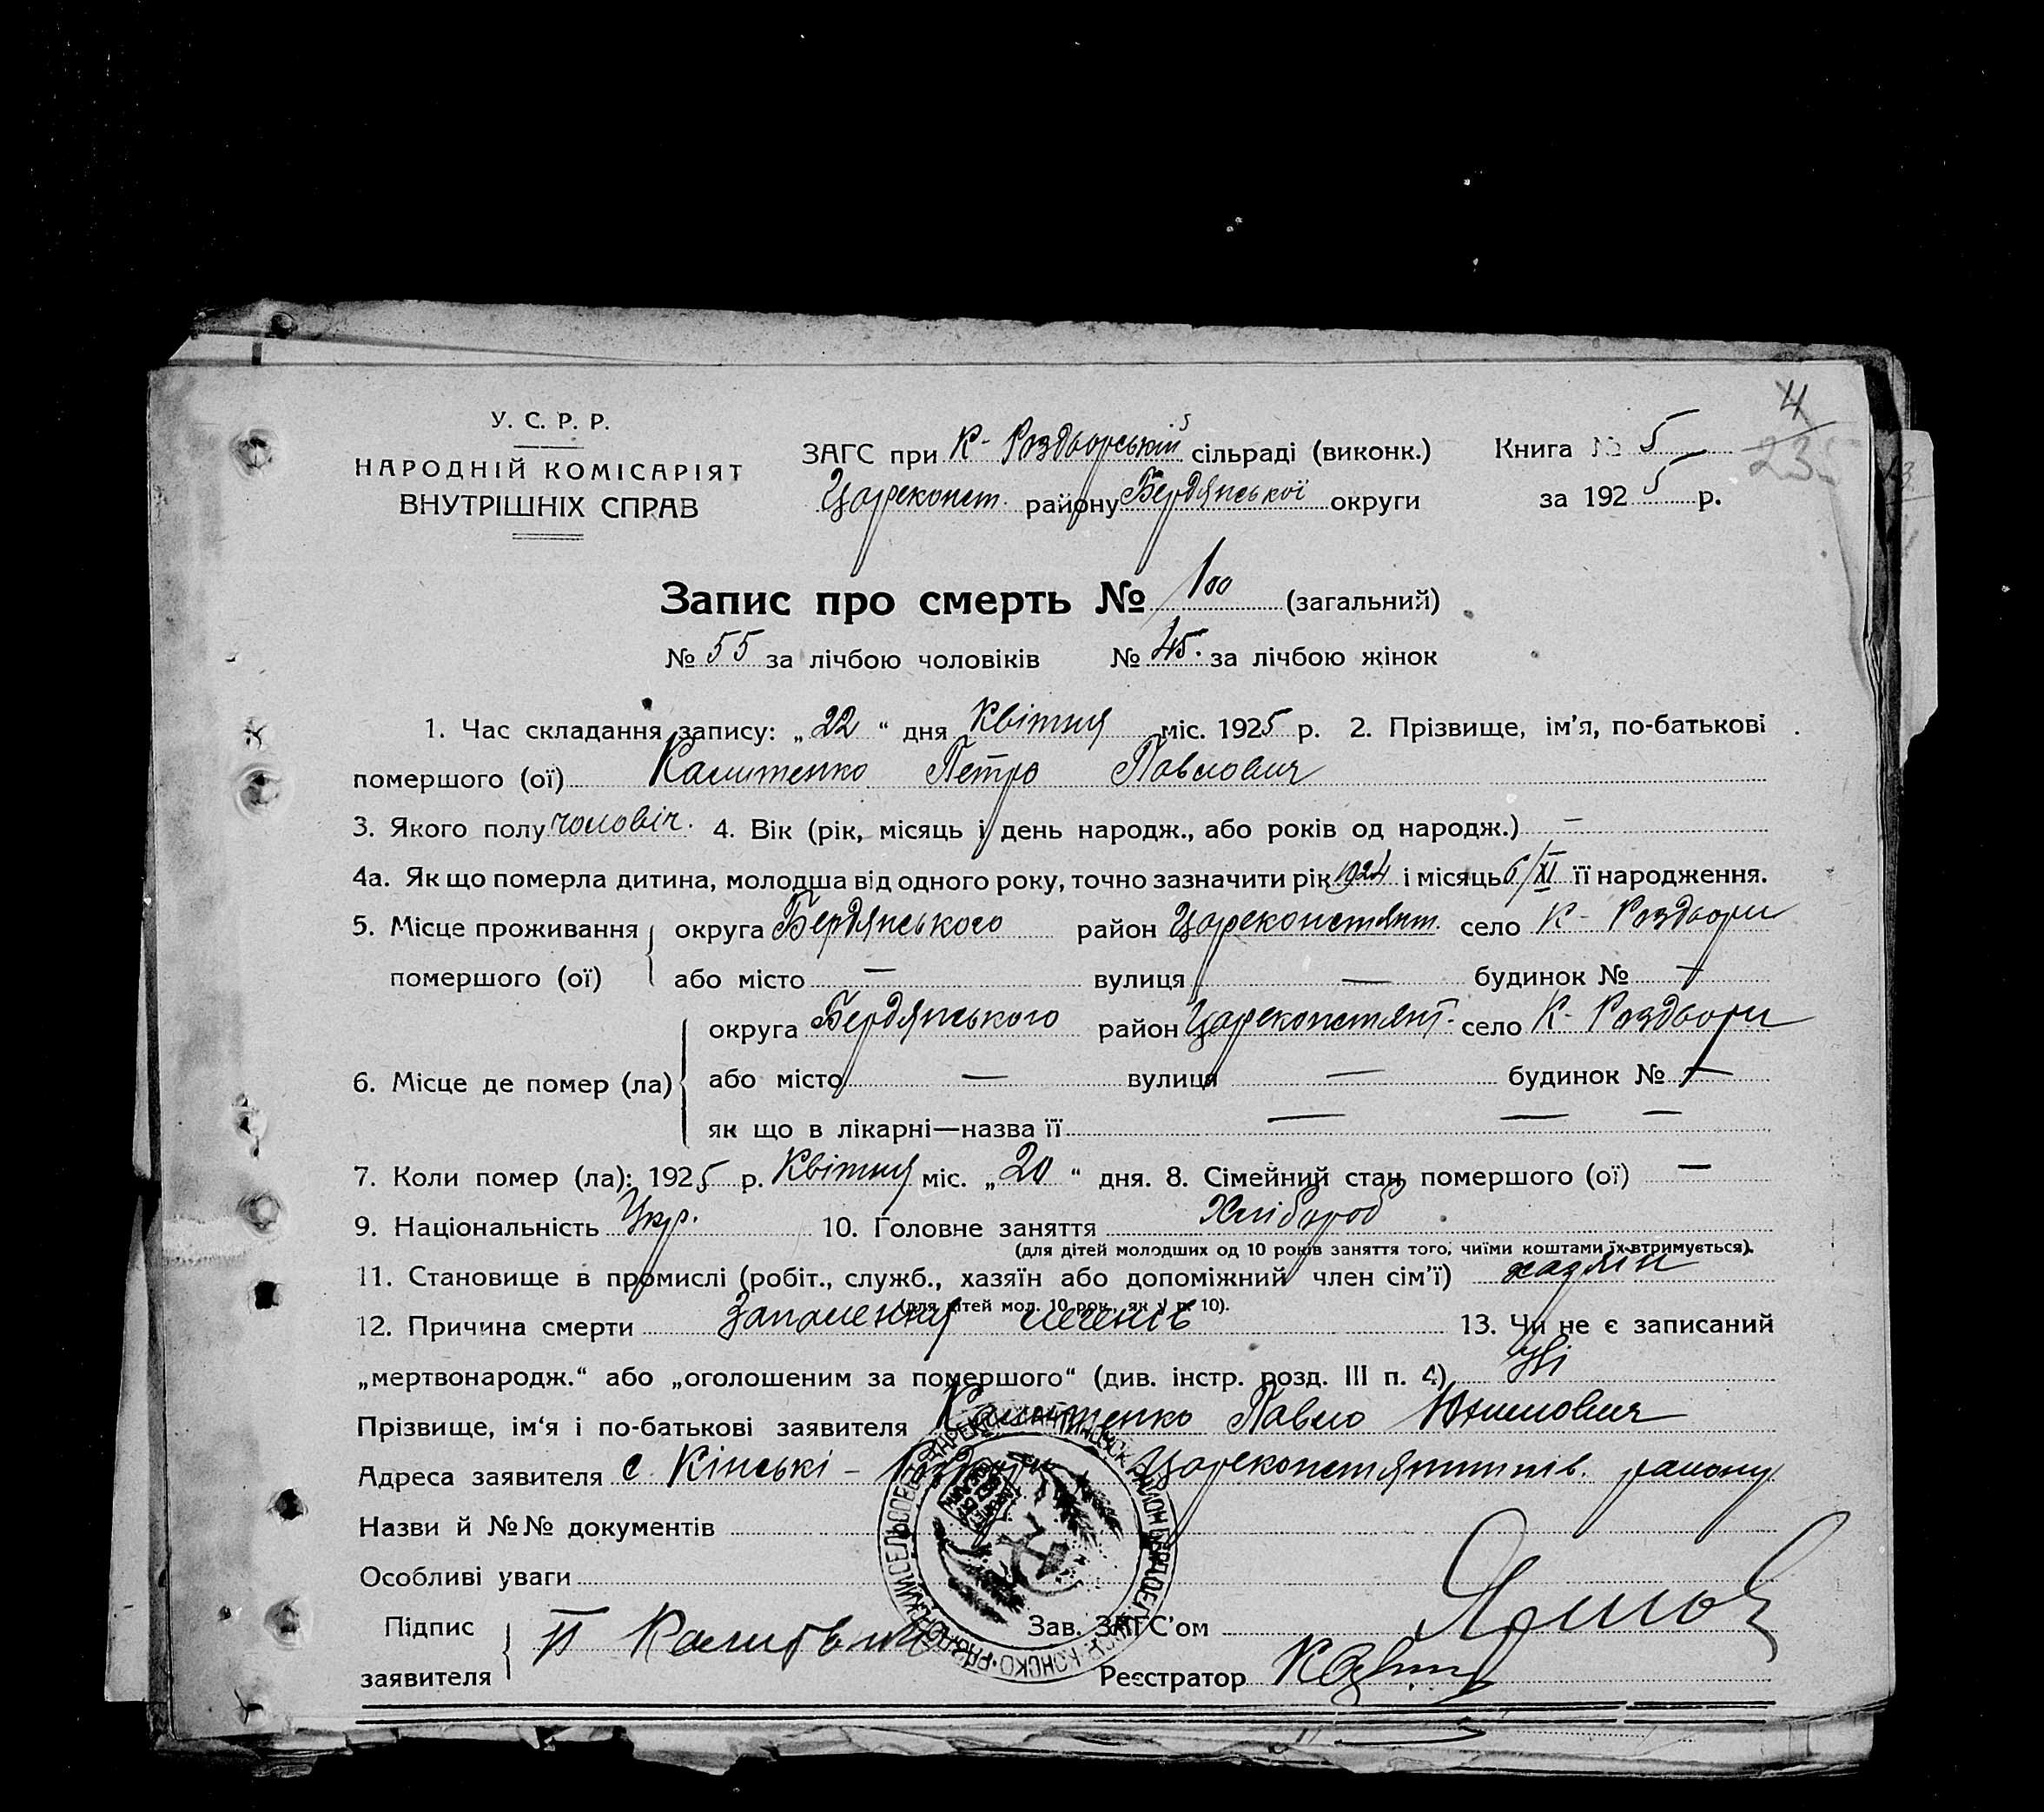 4
235
У. С. Р. Р.
НАРОДНІЙ КОМІСАРІЯТ
ВНУТРІШНІХ СПРАВ
ЗАГС при К- Роздорський сільраді (виконк.)
Цареконст. району Бердянської округи
Книга № 5
за 1925 р.
Запис про смерть № 100 (загальний)
№ 55 за лічбою чоловіків № 45. за лічбою жінок
1. Час складання запису: „22“ дня Квітня міс. 1925 р. 2. Прізвище, ім'я, по-батькові
помершого (ої) Калитенко Петро Павлович
3. Якого полу чоловіч. 4. Вік (рік, місяць і день народж., або років од народж.) —
4а. Як що померла дитина, молодша від одного року, точно зазначити рік 1924 і місяць 6/XI її народження.
5. Місце проживання округа Бердянського район Цареконстянт. село К- Роздори
помершого (ої) або місто — вулиця — будинок № —
округа Бердянського район Цареконстянт. село К- Роздори
6. Місце де помер (ла) або місто — вулиця — будинок № —
як що в лікарні—назва її — — —
7. Коли помер (ла): 1925 р. Квітня міс. „20“ дня. 8. Сімейний стан помершого (ої) —
9. Національність Укр. 10. Головне заняття Хлібороб
(для дітей молодших од 10 років заняття того, чиїми коштами їх втримується).
11. Становище в промислі (робіт., служб., хазяїн або допоміжний член сім'ї) хазяїн
(для дітей мол. 10 рок., як у п. 10).
12. Причина смерти Запалення легенів 13. Чи не є записаний
„мертвонародж.“ або „оголошеним за помершого“ (див. інстр. розд. III п. 4) Ні
Прізвище, ім'я і по-батькові заявителя Калитенко Павло
Адреса заявителя с. Кінські - Цареконстянтинів. району
Назви й №№ документів
Особливі уваги
Підпис заявителя П
Зав. ЗАГС'ом
Реєстратор